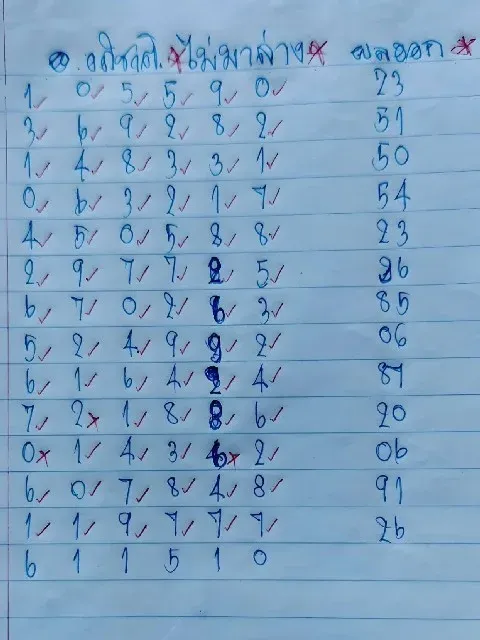 อ. อติชาติ. * ไม่มาล่าง * ผลออก *
1✓ 0✓ 5✓ 5✓ 9✓ 0✓ 23
3✓ 6✓ 9✓ 2✓ 8✓ 2✓ 51
1✓ 4✓ 8✓ 3✓ 3✓ 1✓ 50
0✓ 6✓ 3✓ 2✓ 1✓ 7✓ 54
4✓ 5✓ 0✓ 5✓ 8✓ 8✓ 23
2✓ 9✓ 7✓ 7✓ 2✓ 5✓ 26
6✓ 7✓ 0✓ 2✓ 6✓ 3✓ 85
5✓ 2✓ 4✓ 9✓ 9✓ 2✓ 06
6✓ 1✓ 6✓ 4✓ 2✓ 4✓ 87
7✓ 2× 1✓ 8✓ 8✓ 6✓ 20
0× 1✓ 4✓ 3✓ 6× 2✓ 06
6✓ 0✓ 7✓ 8✓ 4✓ 8✓ 91
1✓ 1✓ 9✓ 7✓ 7✓ 7✓ 26
6 1 1 5 1 0